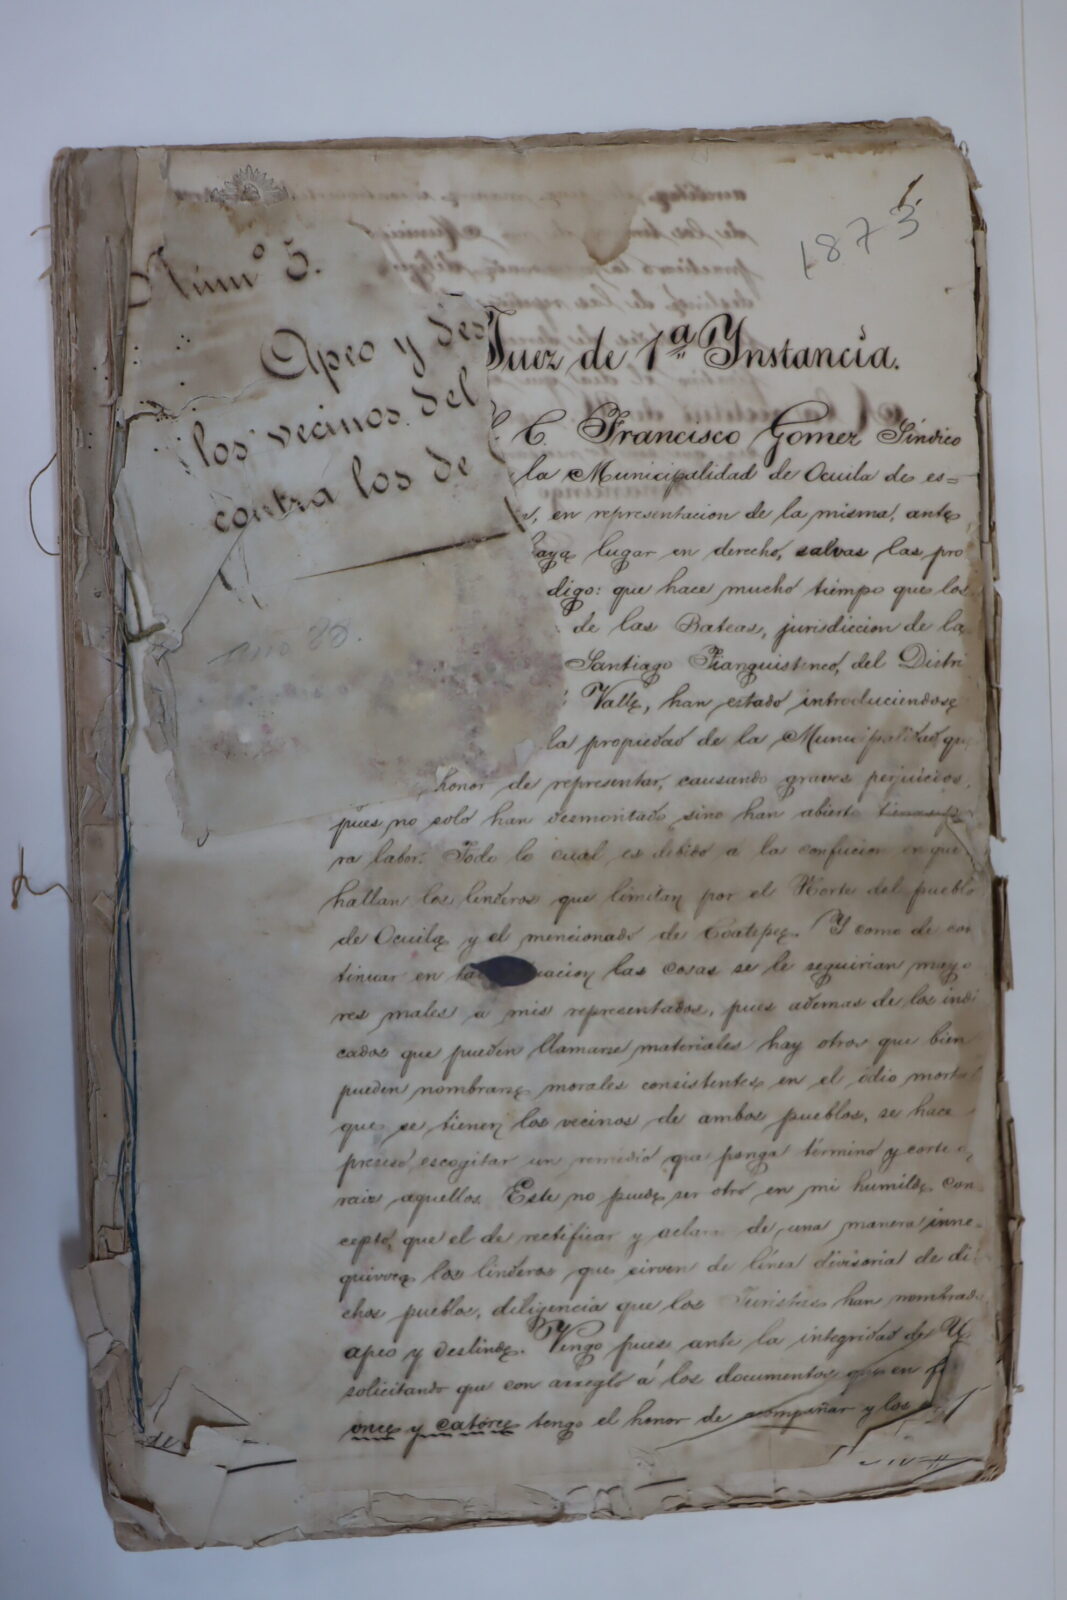 1.
1873
Núm° 5.
Apeo y des
los vecinos del
contra los de
año 28.
Juez de 1ª Ynstancia.
C. Francisco Gomez Síndico
la Municipalidad de Ocuila de es=
, en representacion de la misma, ante
aya lugar en derecho, salvas las pro
digo: que hace mucho tiempo que los
de las Bateas, jurisdiccion de la
Santiago Tianguistenco, del Distri
Valle, han estado introduciendose
la propiedad de la Municipalidad, qu
honor de representar, causando graves perjuicios,
pues no solo han desmontado sino han abierto
ra labor. Todo lo cual es debido á la confucion en que
hallan los linderos que limitan por el Norte del pueblo
de Ocuila y el mencionado de Coatepec. Y como de con
tinuar en uacion las cosas se le seguirian mayo
res males á mis representados, pues ademas de los indi
cados que pueden llamarse materiales hay otros que bien
pueden nombrarse morales consistentes en el ódio mortal
que se tienen los vecinos de ambos pueblos, se hace
preciso escogitar un remedio que ponga término y corte
raiz aquellos. Este no puede ser otro en mi humilde con
cepto, que el de rectificar y aclarar de una manera inne=
quivoca los linderos que sirven de línea divisoria de di
chos pueblos, diligencia que los Juristas han nombrado
apeo y deslinde. Vengo pues ante la integridad de U.
solicitando que con arreglo á los documentos que en
once y catorce tengo el honor de acompañar y los